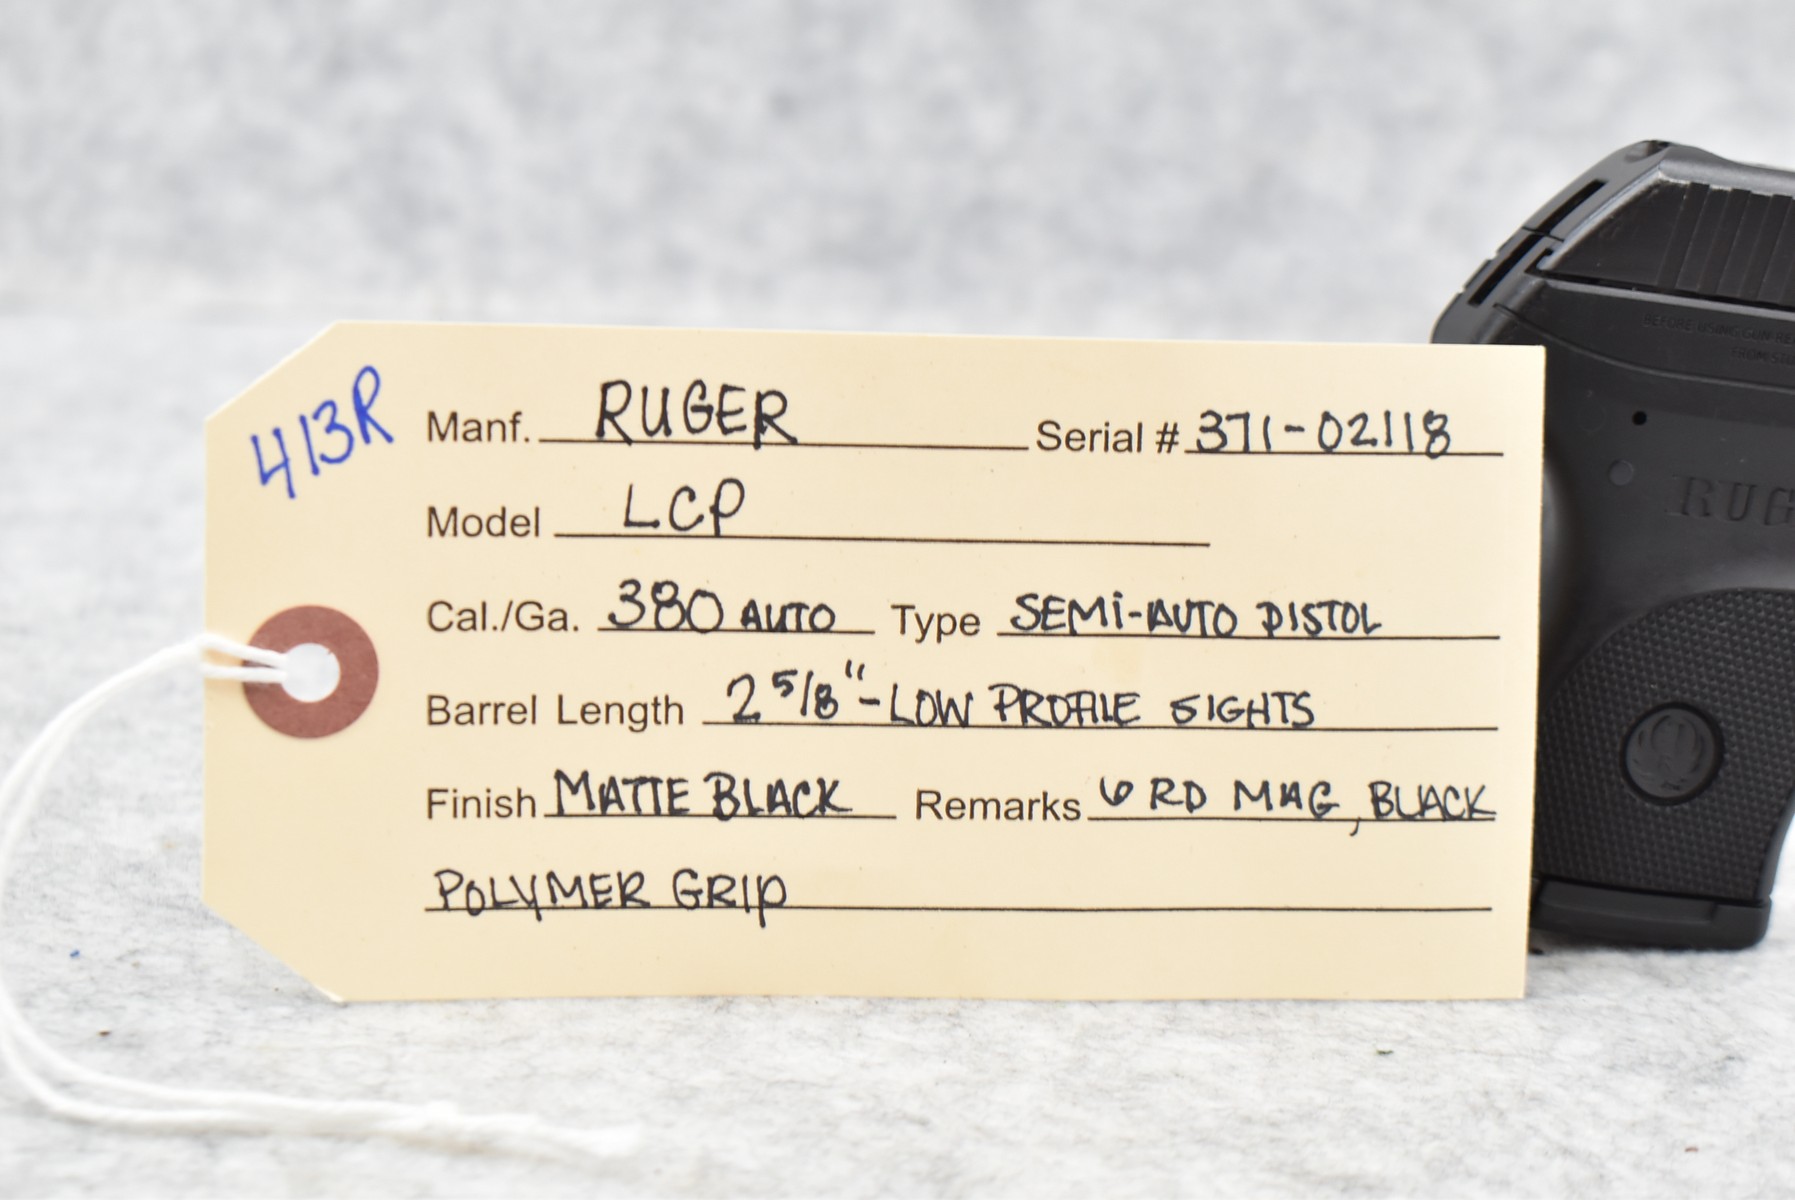 413R
Manf. RUGER Serial # 371-02118
Model LCP
Cal./Ga. 380 AUTO Type SEMI-AUTO PISTOL
Barrel Length 2 5/8" - LOW PROFILE SIGHTS
Finish MATTE BLACK Remarks 6 RD MAG, BLACK
POLYMER GRIP
BEFORE USING GUN-RE
FROM STU
RUG